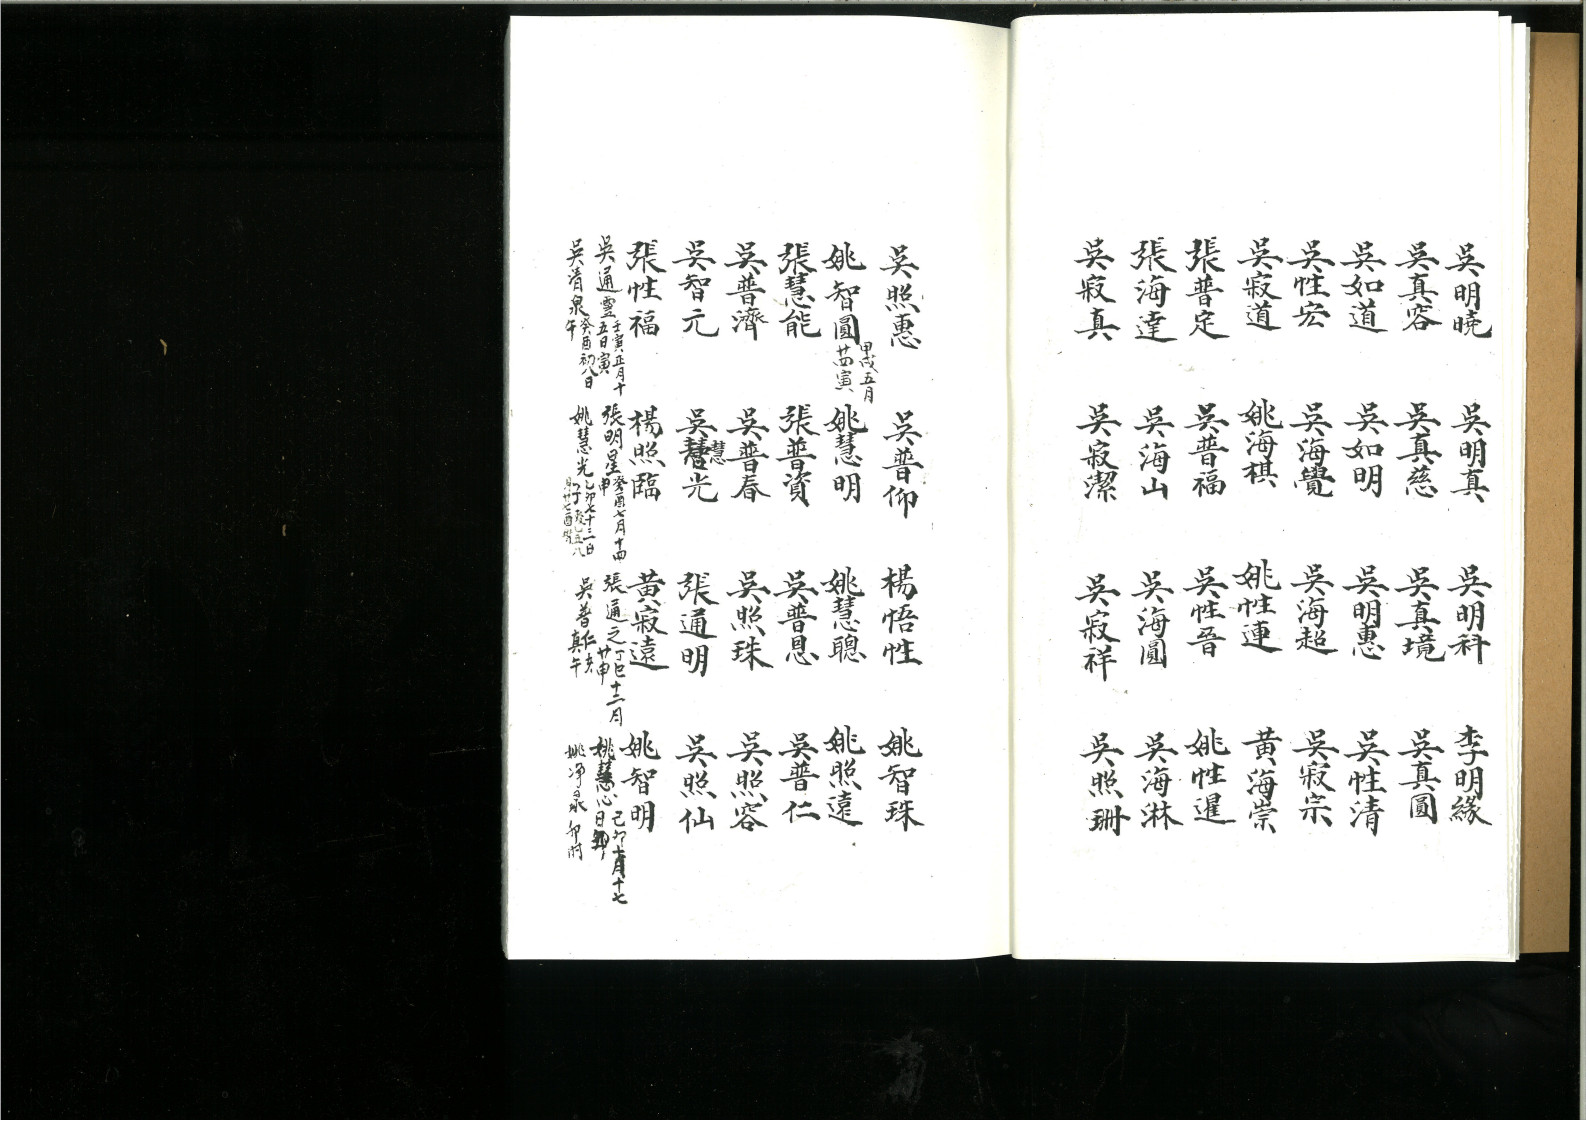 吳明曉 吳明真 吳明科 李明緣
吳真容 吳真慈 吳真境 吳真圓
吳如道 吳如明 吳明惠 吳性清
吳性宏 吳海覺 吳海超 吳寂宗
吳寂道 姚海棋 姚性連 黃海崇
張普定 吳普福 吳性晉 姚性暹
張海達 吳海山 吳海圓 吳海淋
吳寂真 吳寂潔 吳寂祥 吳照珊
吳照惠 吳普仰 楊悟性 姚智珠
姚智圓 甲戌五月廿四寅 姚慧明 姚慧聰 姚照遠
張慧能 張普資 吳普恩 吳普仁
吳普濟 吳普春 吳照珠 吳照容
吳智元 吳慧光 慧 張通明 吳照仙
張性福 楊照臨 黃寂遠 姚智明
吳通靈 壬寅正月十五日寅 張明星 癸酉七月十四申 張通之 丁巳十二月廿申 姚慧心 己卯十月十七日卯
吳清泉 癸酉初八日午 姚慧光 乙卯七十三日子 吳普真 午 姚淨 卯時